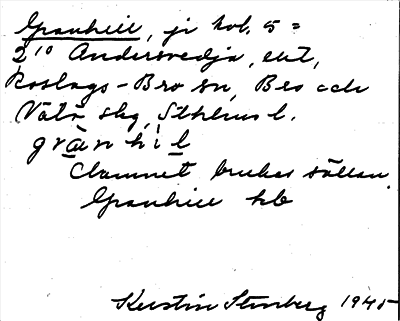 Granhill, jr kol. 5 =
2¹⁰ Andersvedja, ent,
Roslags-Bro sn, Bro och
Vätö skg, Sthlms l.
grà̱nhìḻ
Namnet brukas sällan.
Granhill hb
Kerstin Stenberg 1945